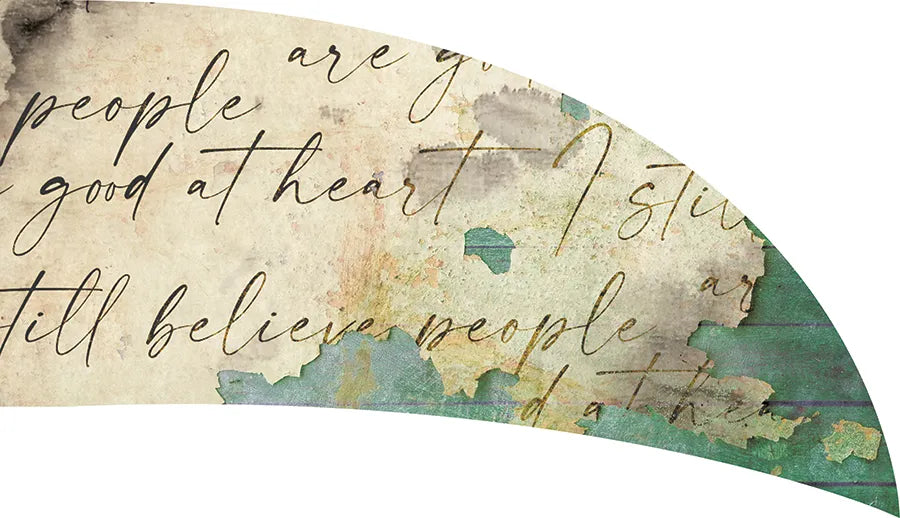 are
people
good at heart I still
still believe people
are
d at hea